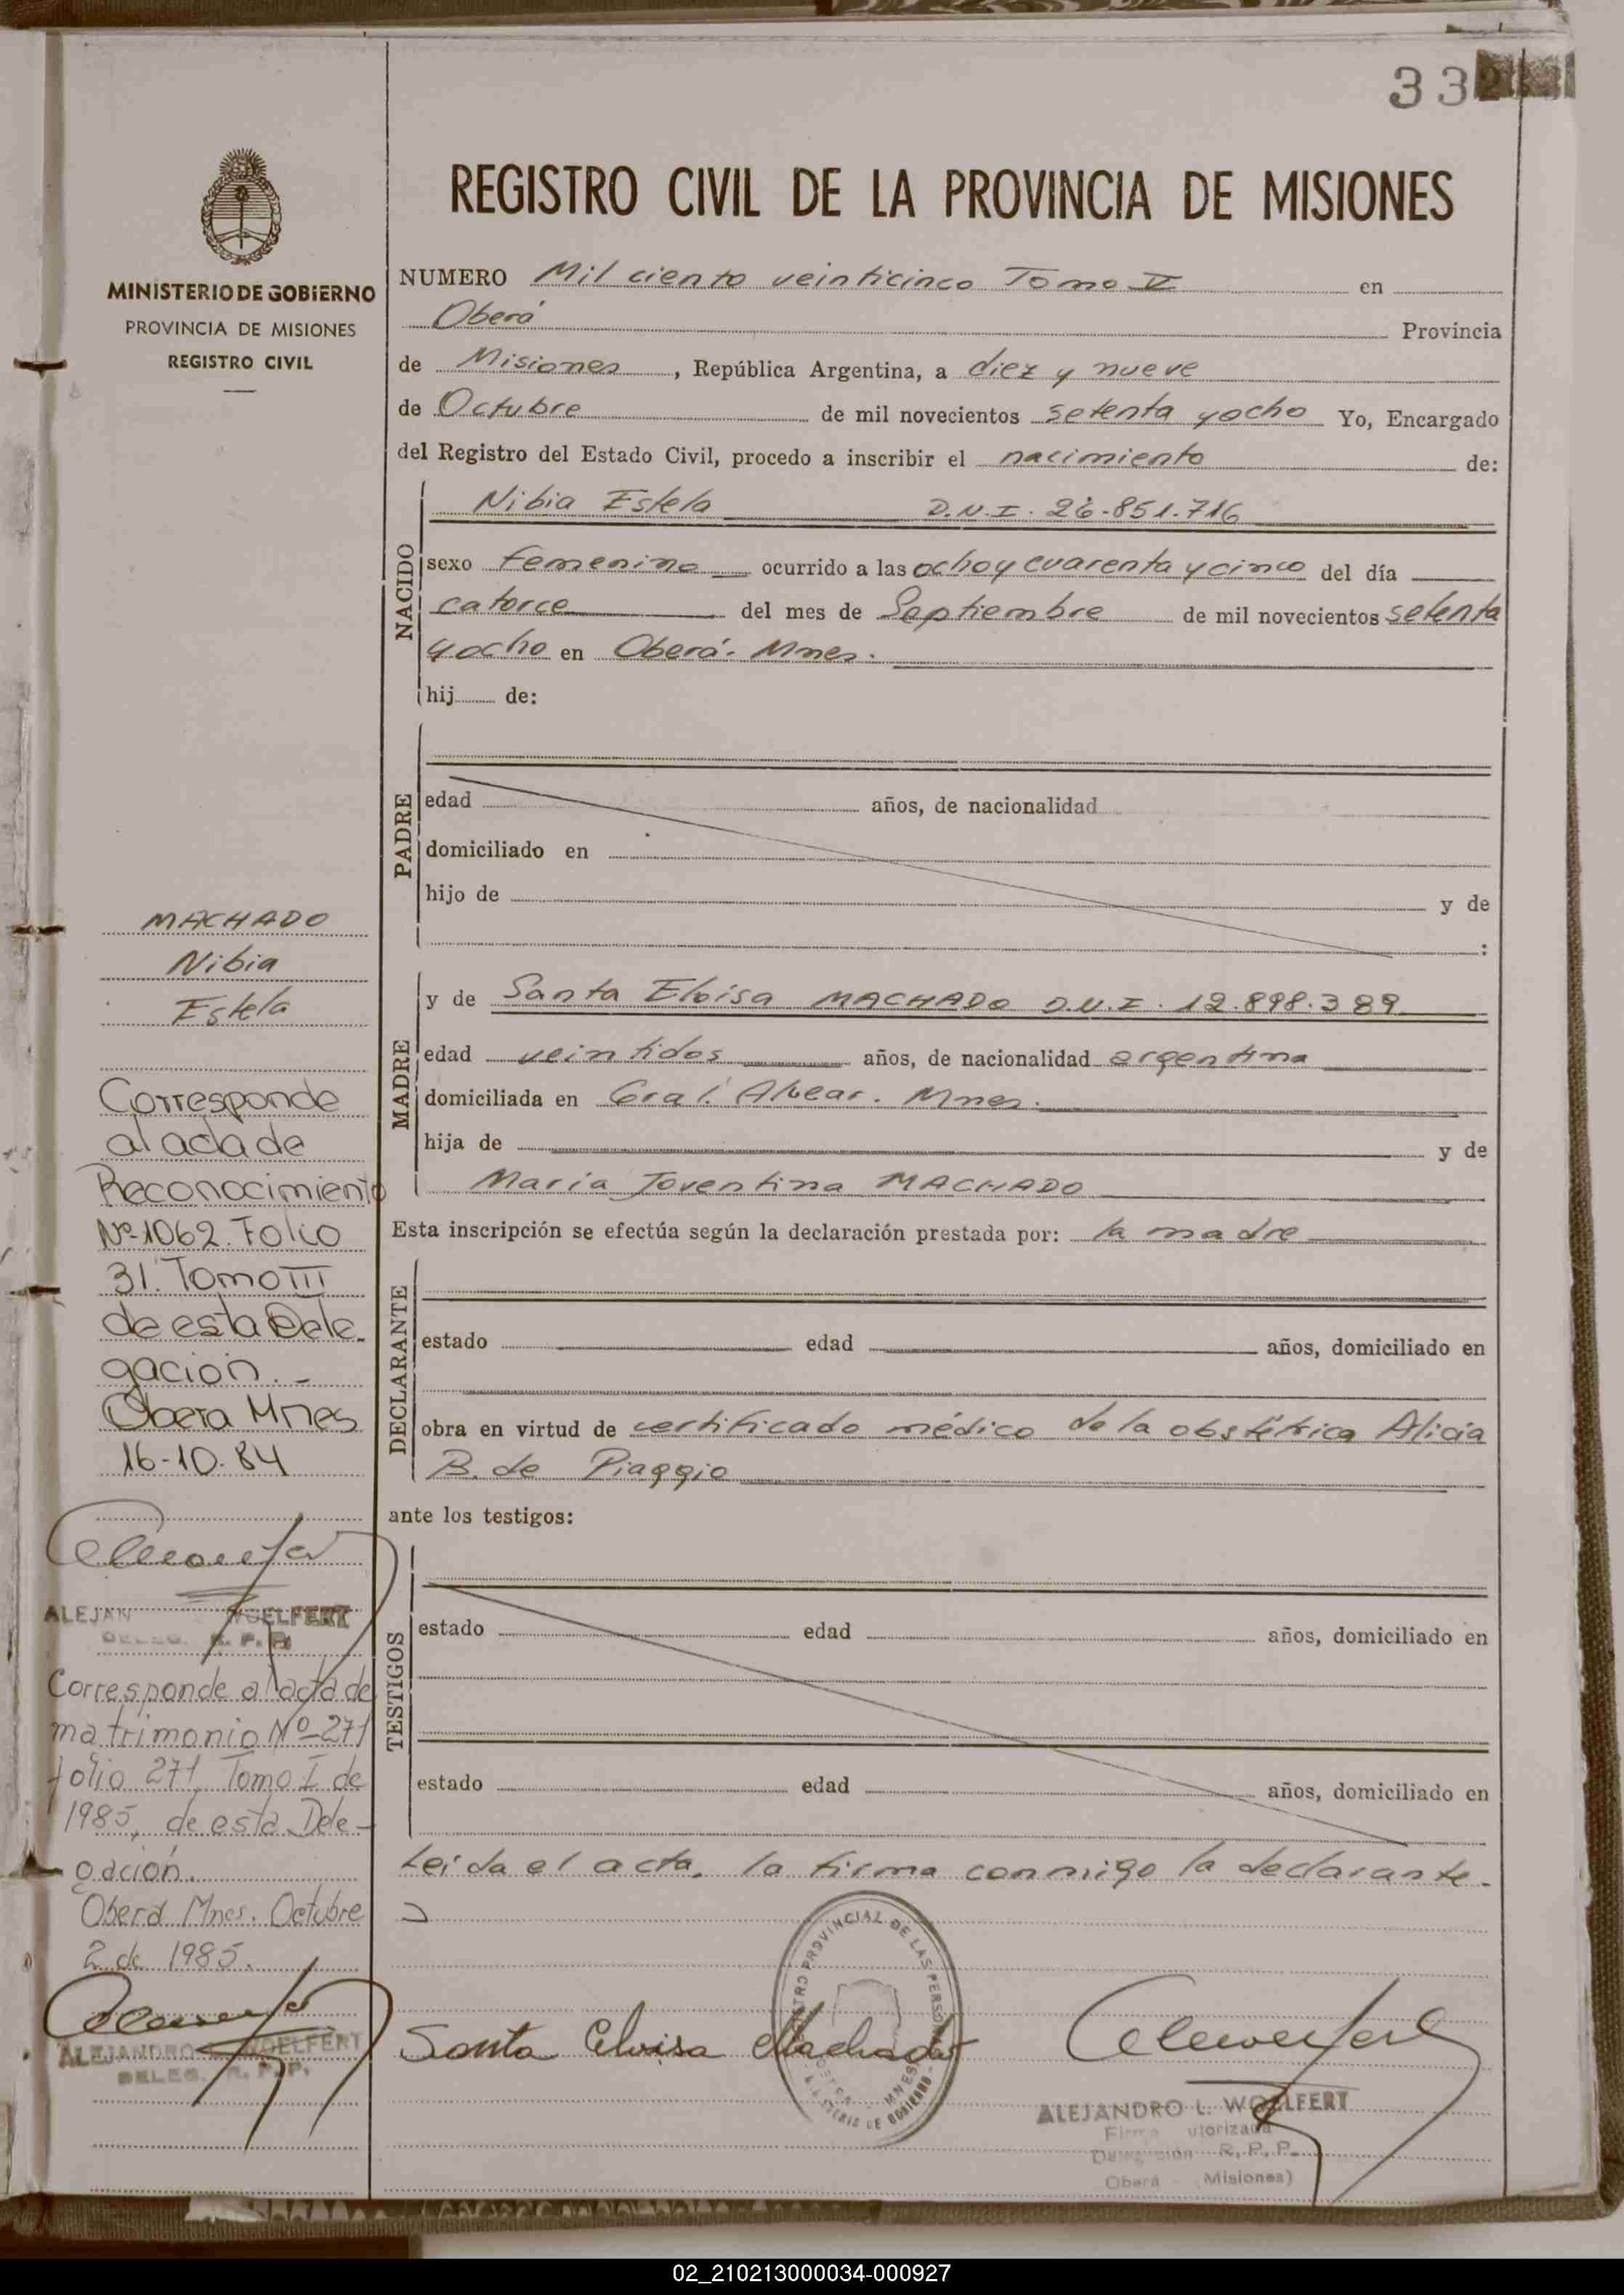 33
REGISTRO CIVIL DE LA PROVINCIA DE MISIONES
MINISTERIO DE GOBIERNO
PROVINCIA DE MISIONES
REGISTRO CIVIL
NUMERO Mil ciento veinticinco Tomo V en
Oberá Provincia
de Misiones, República Argentina, a diez y nueve
de Octubre de mil novecientos setenta y ocho Yo, Encargado
del Registro del Estado Civil, procedo a inscribir el nacimiento de:
NACIDO
Nibia Estela D.N.I. 26.851.716
sexo femenino ocurrido a las ocho y cuarenta y cinco del día
catorce del mes de Septiembre de mil novecientos setenta
y ocho en Oberá- Mnes.
hij de:
PADRE
edad años, de nacionalidad
domiciliado en
hijo de y de
:
MADRE
y de Santa Eloisa MACHADO D.N.I. 12.898.389
edad veintidos años, de nacionalidad argentina
domiciliada en Gral. Alvear. Mnes.
hija de y de
Maria Joventina MACHADO
Esta inscripción se efectúa según la declaración prestada por: la madre
DECLARANTE
estado edad años, domiciliado en
obra en virtud de certificado médico de la obstétrica Alicia
B. de Piaggio
ante los testigos:
TESTIGOS
estado edad años, domiciliado en
estado edad años, domiciliado en
Leída el acta, la firma conmigo la declarante.
Santa Eloisa Machado
ALEJANDRO L. WOELFERT
R. P. P.
Oberá Misiones)
MACHADO
Nibia
Estela
Corresponde
al acta de
Reconocimiento
Nº 1062. Folio
31. Tomo III
de esta Dele-
gación.-
Obera Mnes
16-10-84
ALEJAN WOELFERT
DELEG. R. P. P.
Corresponde al acta de
matrimonio Nº 271
folio 271 Tomo I de
1985, de esta Dele-
gación.
Oberá Mnes. Octubre
2 de 1985.
ALEJANDRO WOELFERT
DELEG. R. P. P.
02_210213000034-000927